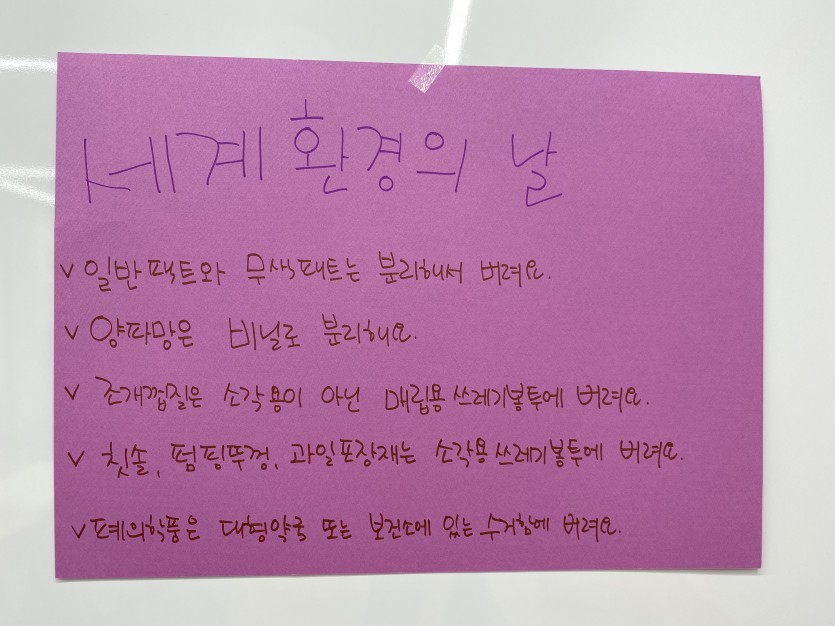 세계 환경의 날
v 일반팩트와 무색패트는 분리해서 버려요.
v 양파망은 비닐로 분리해요.
v 조개껍질은 소각용이 아닌 매립용 쓰레기봉투에 버려요.
v 칫솔, 펌핑뚜껑, 과일포장재는 소각용 쓰레기봉투에 버려요.
v 폐의학품은 대형약국 또는 보건소에 있는 수거함에 버려요.